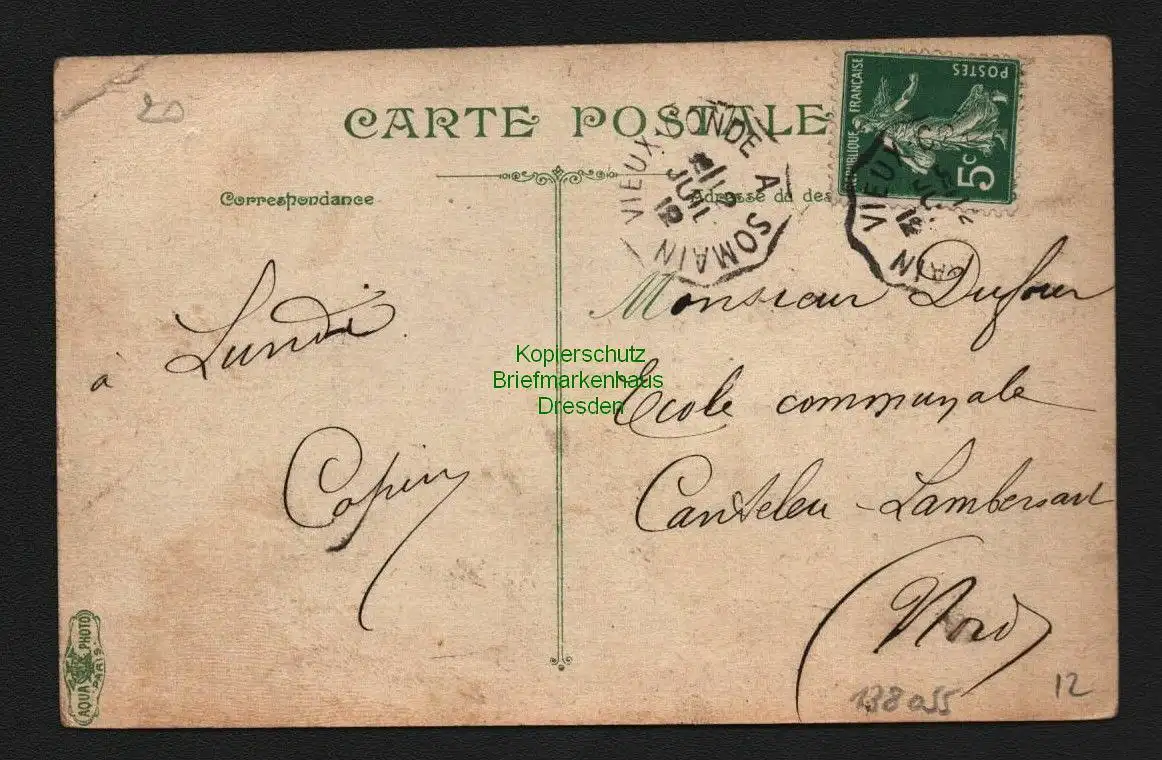 20
CARTE POSTALE
RÉPUBLIQUE FRANÇAISE
POSTES
5c
VIEUX CONDE A SOMAIN
JUIL
12
VIEUX
12
Correspondance
Adresse du des
à Lundi
Copin
Monsieur Dufour
Ecole communale
Canteleu - Lambersart
(Nord)
Kopierschutz
Briefmarkenhaus
Dresden
AQUA PHOTO
PARIS
138055
12